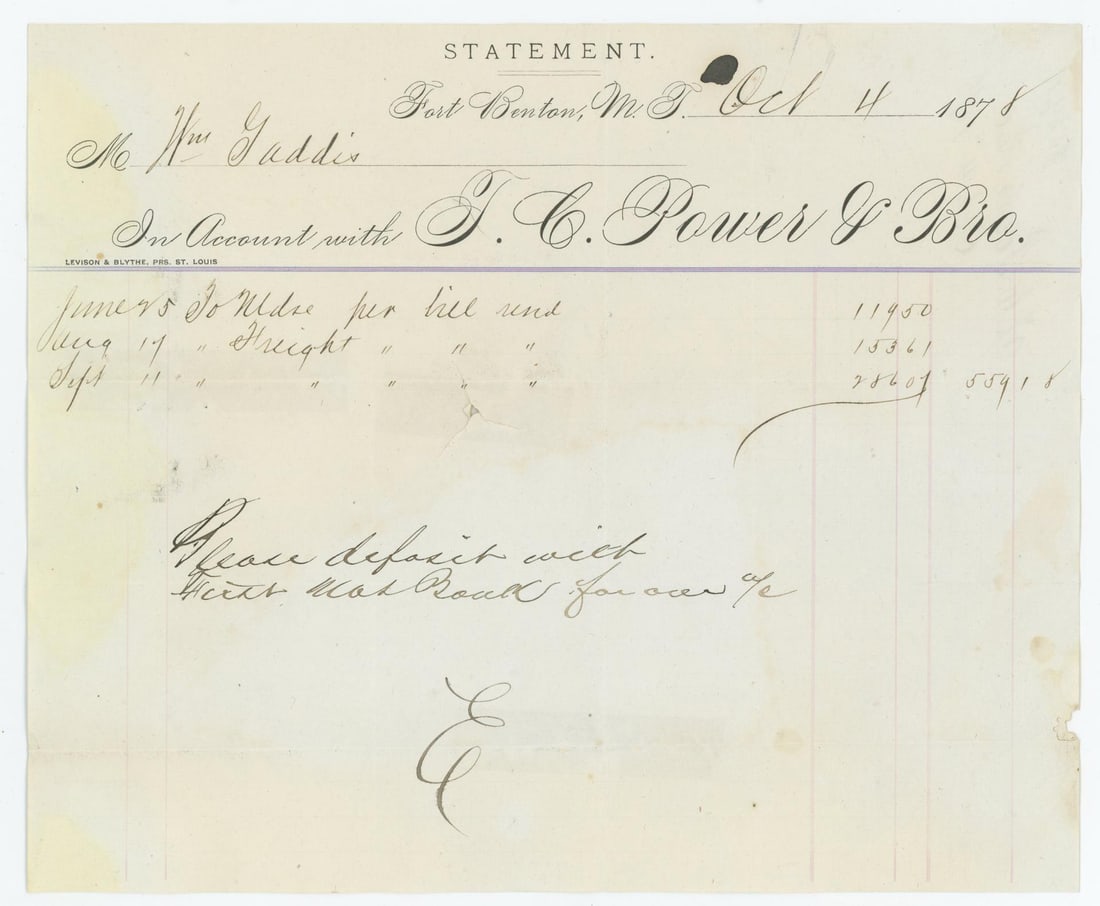 STATEMENT.
Fort Benton, M. T. Oct 4 1878
M Wm Gaddis
In Account with T. C. Power & Bro.
LEVISON & BLYTHE, PRS. ST. LOUIS
June 25 To Mdse per bill rend 119 50
Aug 17 " Freight " " " 153 61
Sept 11 " " " " " 286 07 559 18
Please deposit with
First Nat Bank for our a/c
E